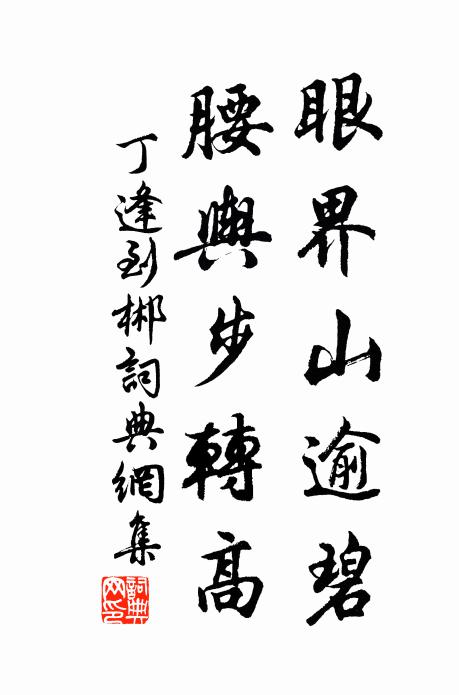 眼界山逾碧
腰輿步轉高
丁逢到郴詞典網集
詞典網印